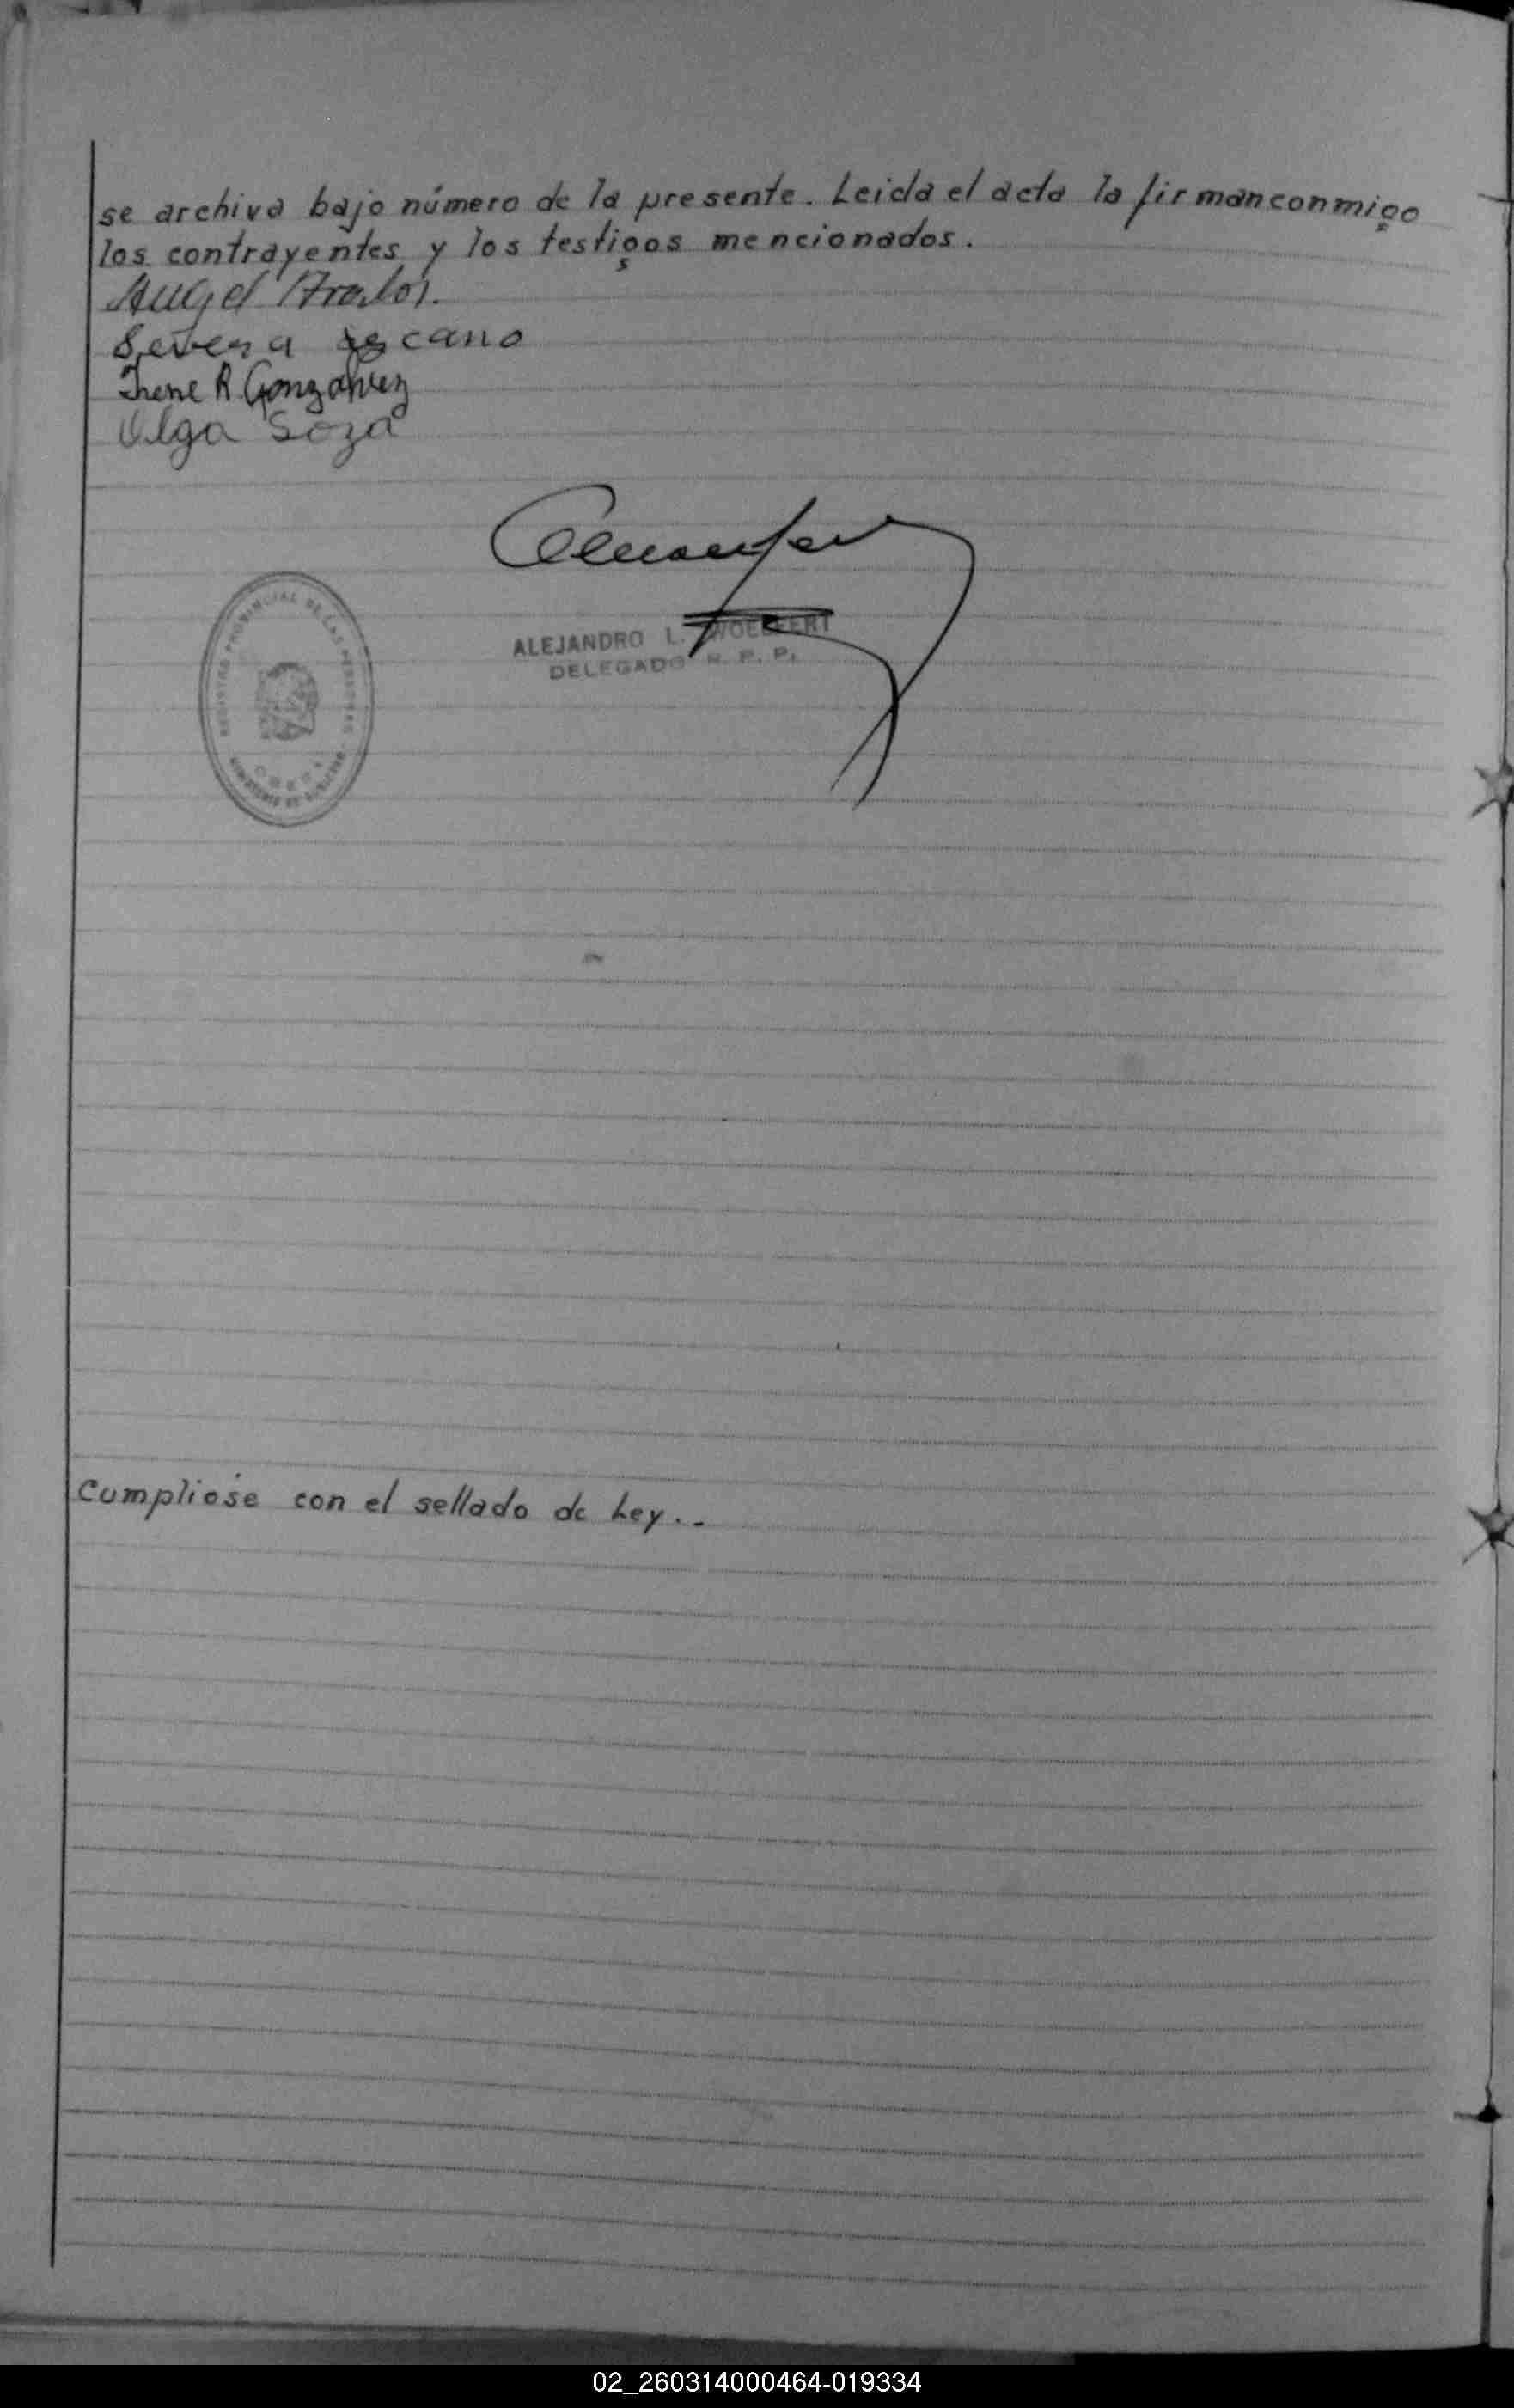 se archiva bajo número de la presente. Leida el acta la firman conmigo
los contrayentes y los testigos mencionados.
Angel Avalos.
Severa Lescano
Irene R. Gonzalvez
Olga Soza
REGISTRO PROVINCIAL DE LAS PERSONAS
ALEJANDRO L. WOELFERT
DELEGADO R. P. P.
Cumplióse con el sellado de Ley..
02_260314000464-019334